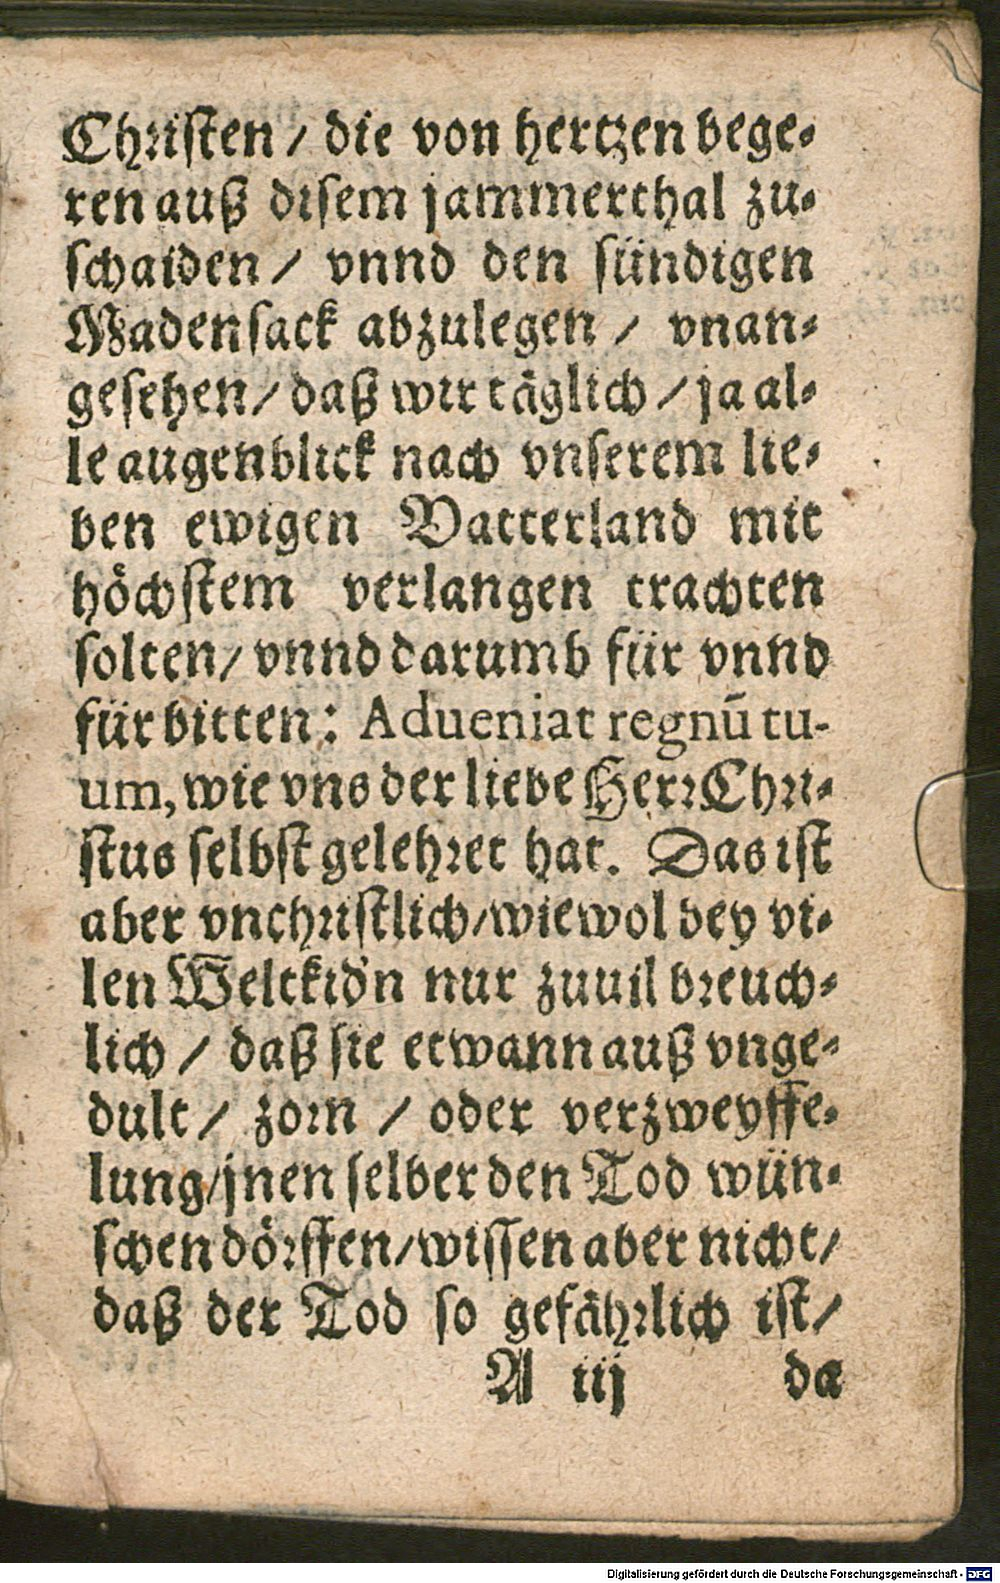 Christen / die von hertzen bege-
ren auß disem jammerthal zu-
schaiden / vnnd den sündigen
Madensack abzulegen / vnan-
gesehen / daß wir täglich / ja al-
le augenblick nach vnserem lie-
ben ewigen Vatterland mit
höchstem verlangen trachten
solten / vnnd darumb für vnnd
für bitten: Adueniat regnū tu-
um, wie vns der liebe Herr Chri-
stus selbst gelehret hat. Das ist
aber vnchristlich / wiewol bey vi-
len Weltkidn nur zuuil breuch-
lich / daß sie etwann auß vnge-
dult / zorn / oder verzweyffe-
lung / jnen selber den Tod wün-
schen dörffen / wissen aber nicht /
daß der Tod so gefährlich ist /
A iij da
Digitalisierung gefördert durch die Deutsche Forschungsgemeinschaft - DFG